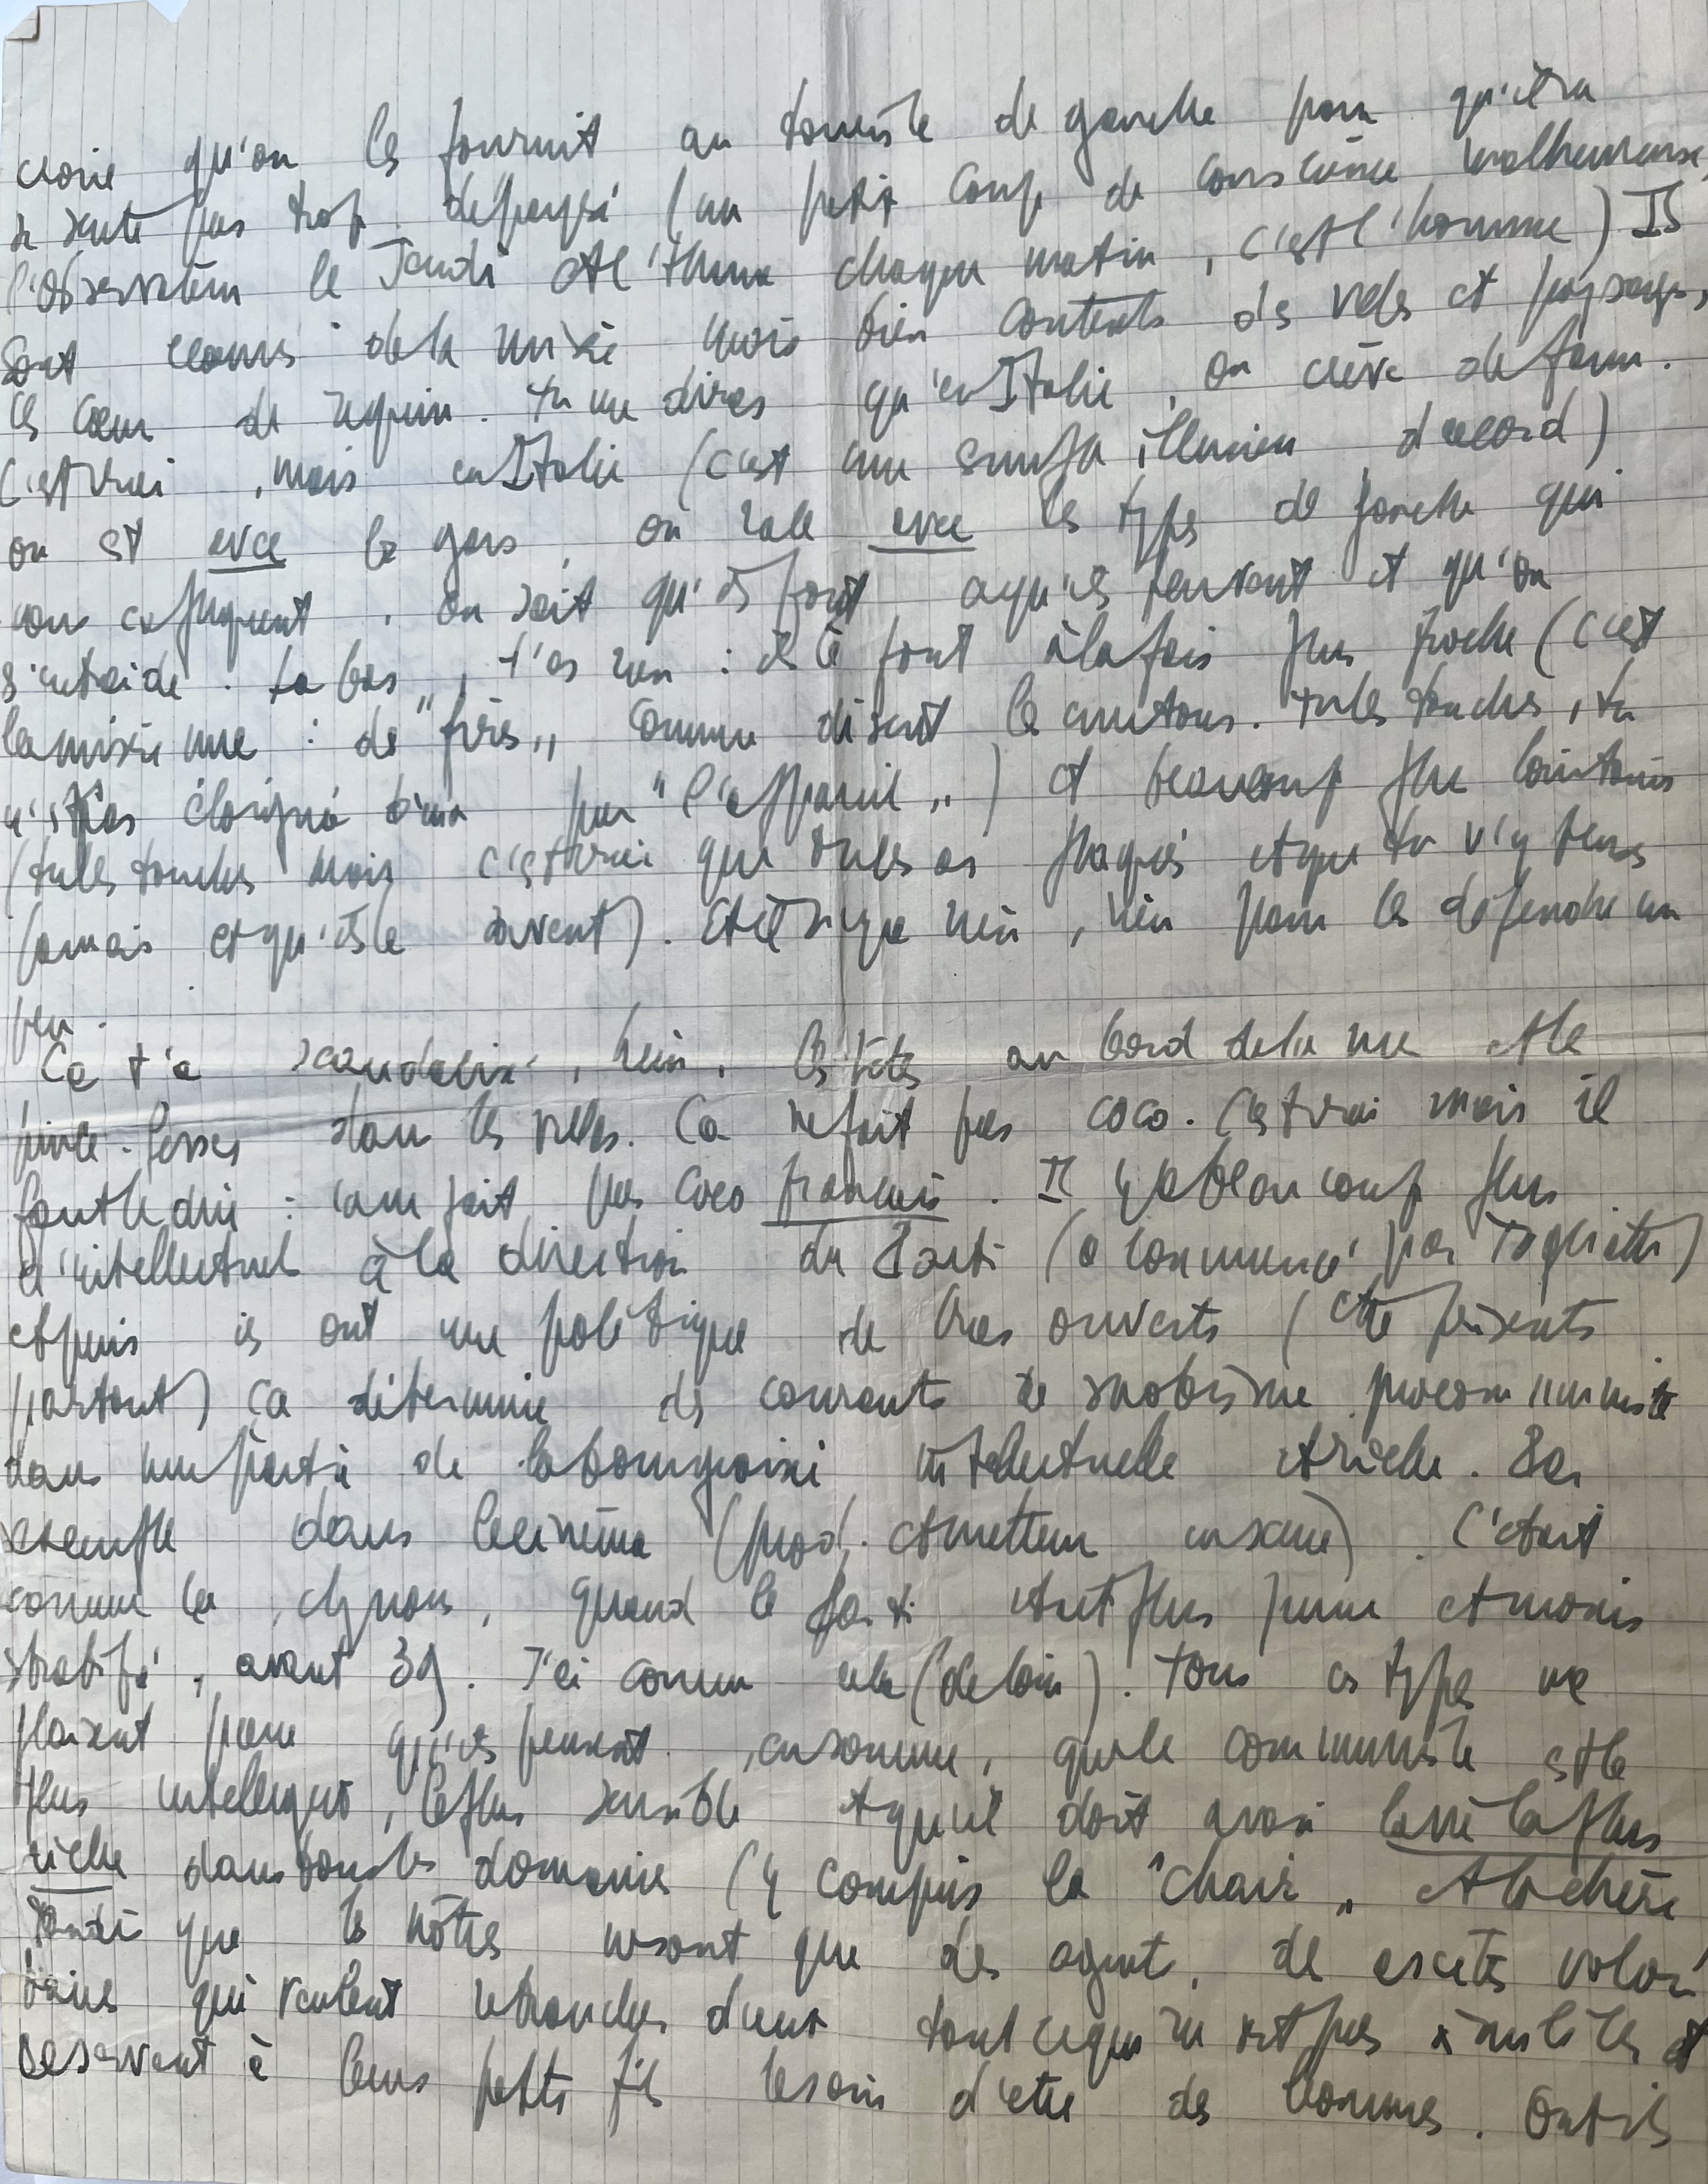 croire qu'on les fournit au touriste de gauche pour qu'il ne
se sente pas trop dépaysé (un petit coup de conscience malheureuse,
l'Observateur le Jeudi et l'Huma chaque matin, c'est l'homme) Ils
sont de la misère mais bien contents des villes et paysages,
ces cœurs de requin. Tu me diras qu'en Italie, on crève de faim.
C'est vrai, mais en Italie (c'est une simple illusion d'accord)
on est avec les gars, on râle avec les types de gauche qui
vous expliquent, on sait qu'ils font ce qu'ils peuvent et qu'on
s'entraide. Là bas, t'es rien : ils te sont à la fois plus proches (c'est
la misère nue : des "frères" comme disent les curetons. Tu les touches, tu
n'es pas éloigné d'eux par "l'appareil") et beaucoup plus lointains
(tu les touches mais c'est vrai que tu les as plaqués et que tu n'y peux
jamais et qu'ils le savent). Et il n'y a rien, rien pour les défendre un
peu.
Ça t'a scandalisé, hein, les fêtes au bord de la mer et le
pince-fesses dans les villas. Ça ne fait pas coco. C'est vrai mais il
faut le dire : ça ne fait pas coco français. Il y a beaucoup plus
d'intellectuels à la direction du Parti (à commencé par Togliatti)
et puis ils ont une politique de bras ouverts (être présents
partout) ça détermine des courants de snobisme procommuniste
dans une partie de la bourgeoisie intellectuelle et riche. Par
exemple dans le cinéma (prod. et metteur en scène). C'était
comme ça, chez nous, quand le parti était plus jeune et moins
stratifié, avant 39. J'ai connu cela (de loin). Tous ces types me
plaisent parce qu'ils pensent, en somme, que le communiste est le
plus intelligent, le plus sensible et qu'il doit avoir la vie la plus
riche dans tous les domaines (y compris la "chair" et la chère
tandis que les nôtres ne sont que des agents, des ascètes volon-
taires qui veulent retrancher d'eux tout ce qui n'est pas utile et
réservent à leurs petits fils le soin d'être des hommes. Ont-ils